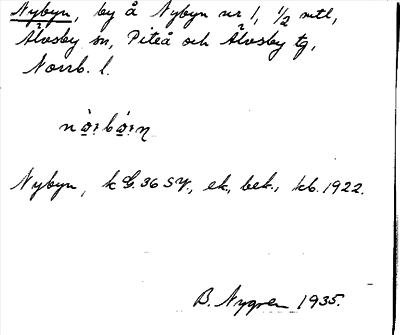 Nybyn, by å Nybyn nr 1, 1/2 mtl,
Älvsby sn, Piteå och Älvsby tg,
Norrb. l.
Nybyn, k G. 36 SV., ek., bek., kb. 1922.
B. Nygren 1935.